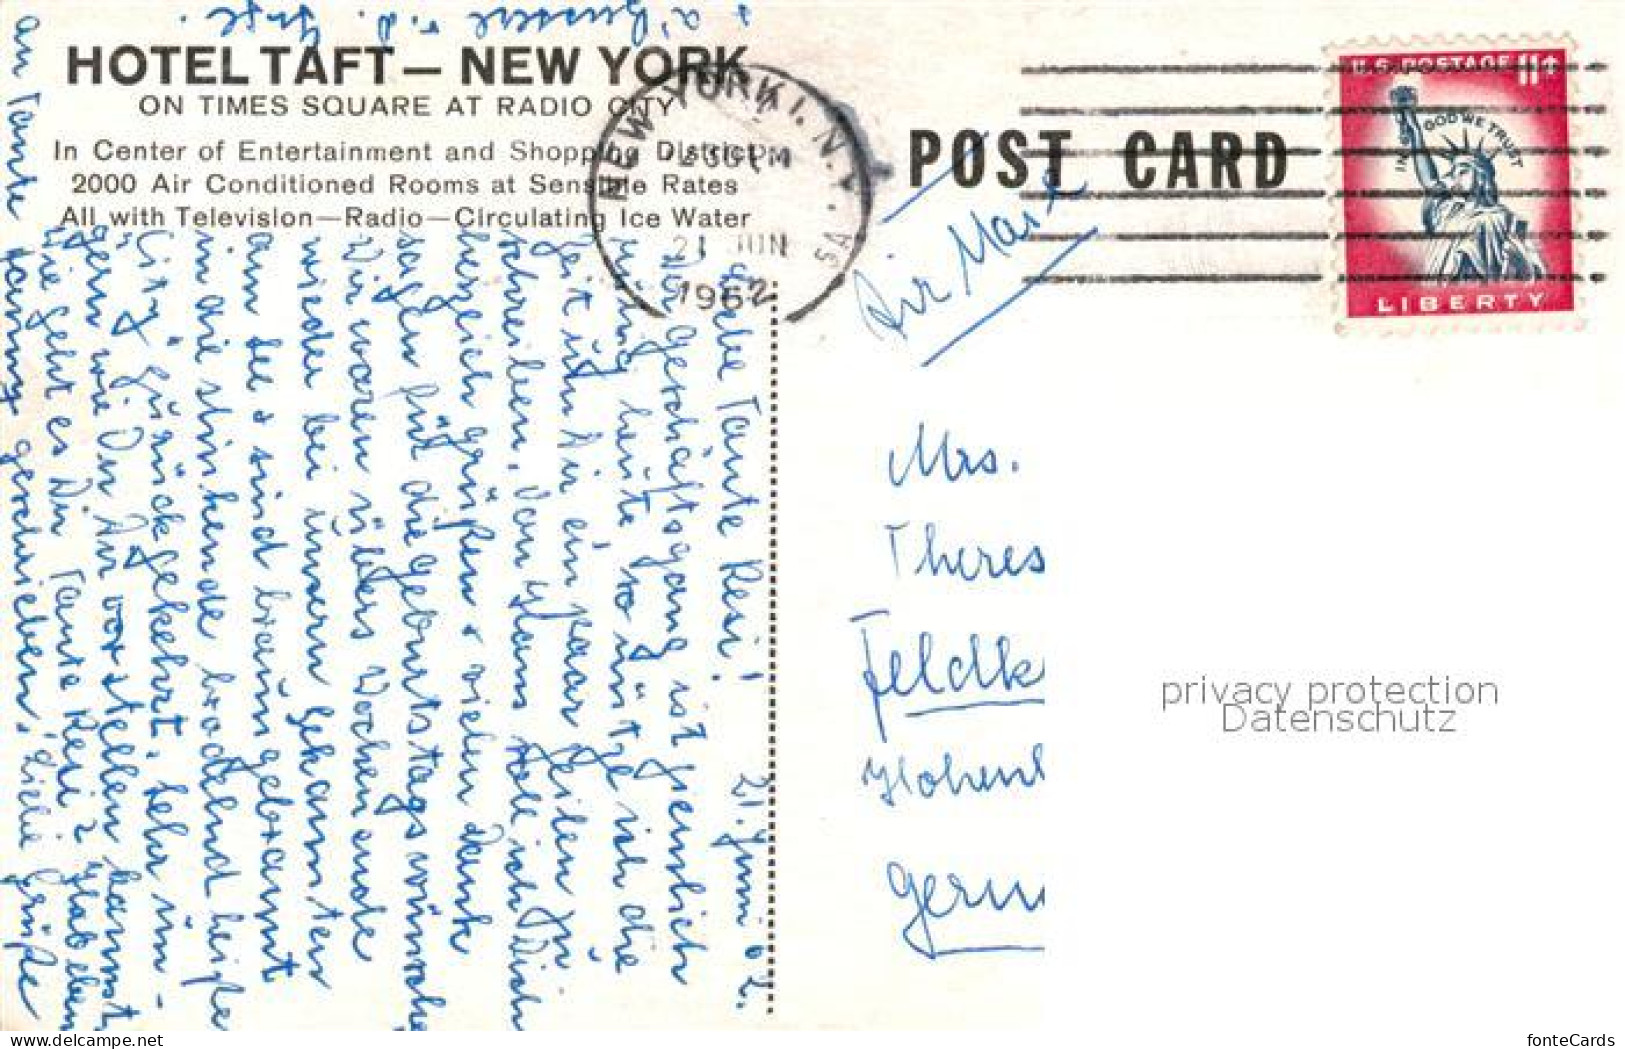 HOTEL TAFT — NEW YORK
ON TIMES SQUARE AT RADIO CITY
In Center of Entertainment and Shopping District
2000 Air Conditioned Rooms at Sensible Rates
All with Television—Radio—Circulating Ice Water
NEW YORK 1, N.Y.
PM
21 JUN
1962
POST CARD
U.S. POSTAGE 11¢
IN GOD WE TRUST
LIBERTY
Air Mail
21. Juni 62.
Liebe Tante Resi!
Der Geschäftsgang ist ziemlich
ruhig heute so nütze ich die
Zeit um Dir ein paar Zeilen zu
schreiben. Von Hans soll ich Dich
herzlich grüßen + vielen Dank
sagen für die Geburtstagswünsche
Wir waren übers Wochenende
wieder bei unsern Bekannten
am See + sind braungebrannt
in die stinkende brodelnd heiße
City zurückgekehrt. Sehr un-
gern wie Du Dir vorstellen kannst
Wie geht es Dir Tante Resi? Hab eben
an Tante Fanny geschrieben. Liebe Grüße
+
Mrs.
Theres
Feldk
Hohenl
Germ
privacy protection
Datenschutz
www.delcampe.net
fonteCards